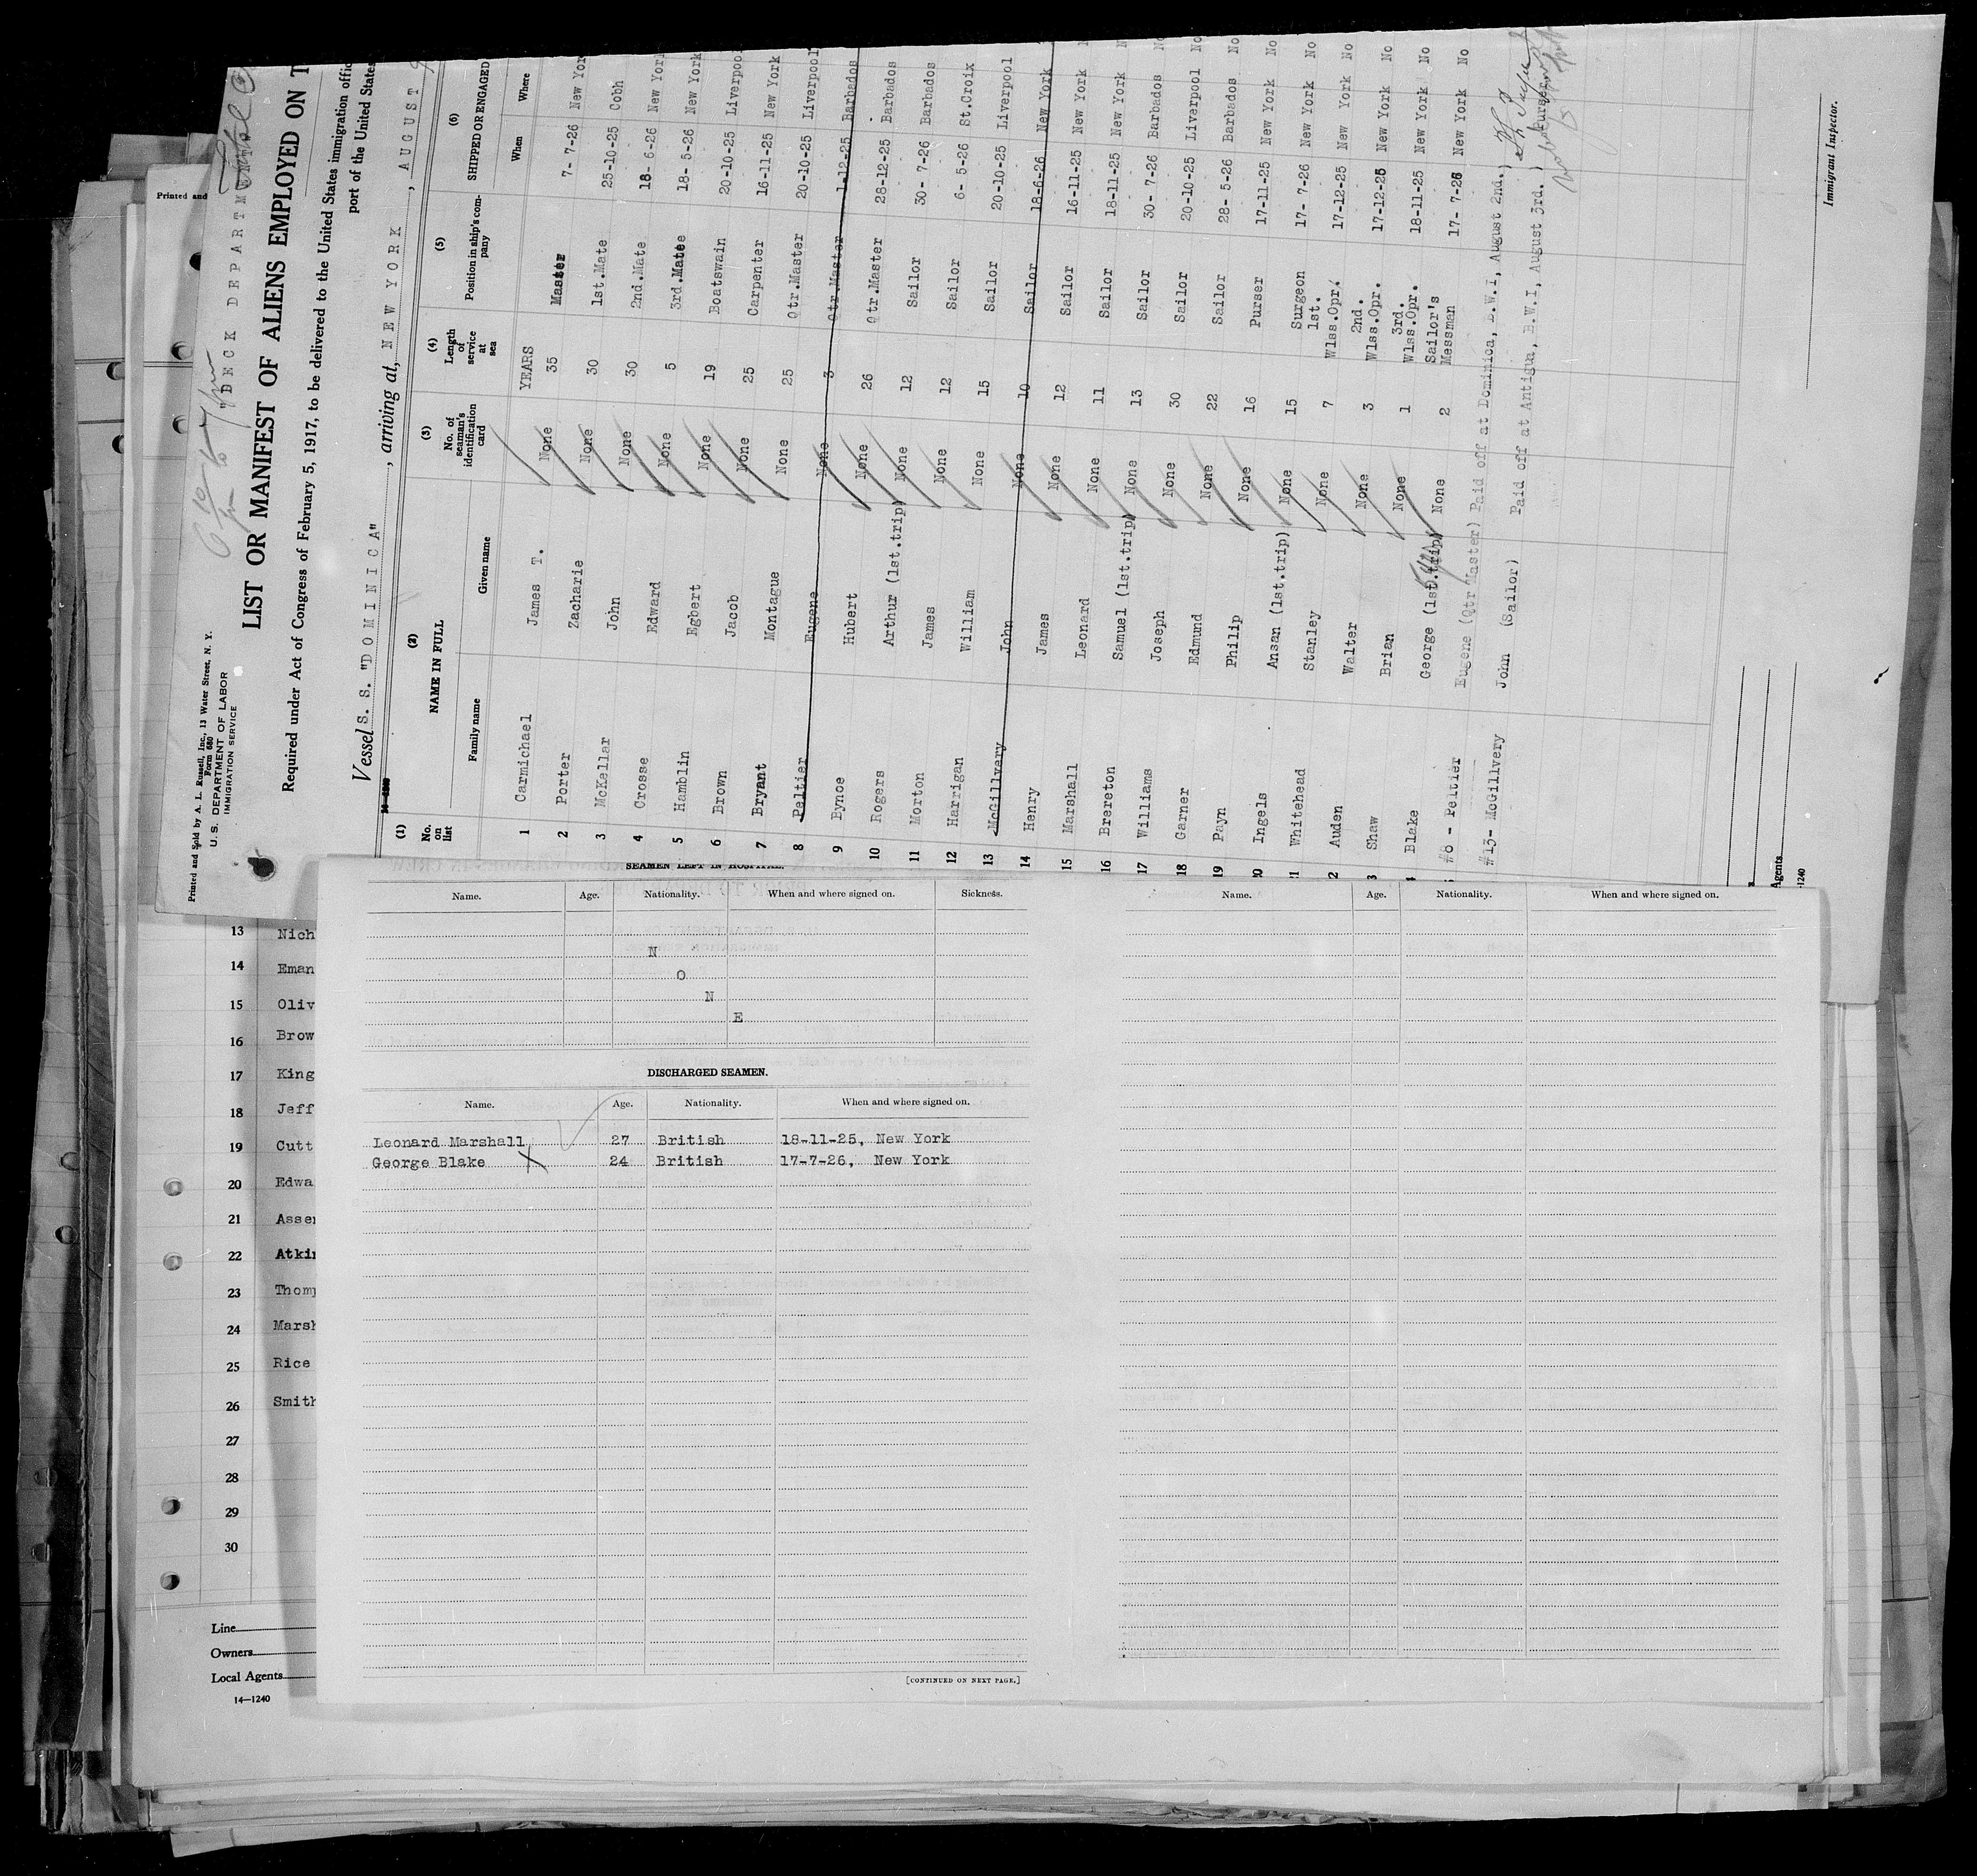 Printed and Sold by A. L. Russell, Inc., 13 Water Street, N. Y.
Form 680
U. S. DEPARTMENT OF LABOR
IMMIGRATION SERVICE
"DECK DEPARTMENT"
LIST OR MANIFEST OF ALIENS EMPLOYED ON T
Required under Act of Congress of February 5, 1917, to be delivered to the United States immigration offic
port of the United States
Vessel S. S. "DOMINICA", arriving at, NEW YORK, AUGUST
(1) (2) (3) (4) (5) (6)
No. on list NAME IN FULL No. of seaman's identification card Length of service at sea Position in ship's company SHIPPED OR ENGAGED
Family name Given name When Where
YEARS
1 Carmichael James T. None 35 Master 7- 7-26 New Yor
2 Porter Zacharie None 30 1st.Mate 25-10-25 Cobh
3 McKellar John None 30 2nd.Mate 18- 6-26 New York
4 Crosse Edward None 5 3rd.Mate 18- 5-26 New York
5 Hamblin Egbert None 19 Boatswain 20-10-25 Liverpool
6 Brown Jacob None 25 Carpenter 16-11-25 New York
7 Bryant Montague None 25 Qtr.Master 20-10-25 Liverpool
8 Peltier Eugene None 3 Qtr.Master 1-12-25 Barbados
9 Bynoe Hubert None 26 Qtr.Master 28-12-25 Barbados
10 Rogers Arthur (1st.trip) None 12 Sailor 30- 7-26 Barbados
11 Morton James None 12 Sailor 6- 5-26 St.Croix
12 Harrigan William None 15 Sailor 20-10-25 Liverpool
13 McGillvery John None 10 Sailor 18-6-26 New York
14 Henry James None 12 Sailor 16-11-25 New York N
15 Marshall Leonard None 11 Sailor 18-11-25 New York N
16 Brereton Samuel (1st.trip) None 13 Sailor 30- 7-26 Barbados No
17 Williams Joseph None 30 Sailor 20-10-25 Liverpool No
18 Garner Edmund None 22 Sailor 28- 5-26 Barbados No
19 Payn Philip None 16 Purser 17-11-25 New York No
20 Ingels Ansan (1st.trip) None 15 Surgeon 17- 7-26 New York No
21 Whitehead Stanley None 7 1st. Wlss.Opr. 17-12-25 New York No
2 Auden Walter None 3 2nd. Wlss.Opr. 17-12-25 New York No
3 Shaw Brian None 1 3rd. Wlss.Opr. 18-11-25 New York No
4 Blake George (1st.trip) None 2 Sailor's Messman 17- 7-26 New York No
#8 - Peltier Eugene (Qtr Master) Paid off at Dominica, B.W.I, August 2nd.)
#13- McGillvery John (Sailor) Paid off at Antigua, B.W.I, August 3rd. )
Purser
Immigrant Inspector.
Agents
-1240
Printed and
13 Nich
14 Eman
15 Oliv
16 Brow
17 King
18 Jeff
19 Cutt
20 Edwa
21 Asse
22 Atki
23 Thom
24 Mars
25 Rice
26 Smith
27
28
29
30
Line
Owners
Local Agents
14—1240
SEAMEN LEFT IN HOSPITAL.
Name. Age. Nationality. When and where signed on. Sickness.
N
O
N
E
DISCHARGED SEAMEN.
Name. Age. Nationality. When and where signed on.
Leonard Marshall 27 British 18-11-25, New York
George Blake X 24 British 17-7-26, New York
[CONTINUED ON NEXT PAGE.]
Name. Age. Nationality. When and where signed on.